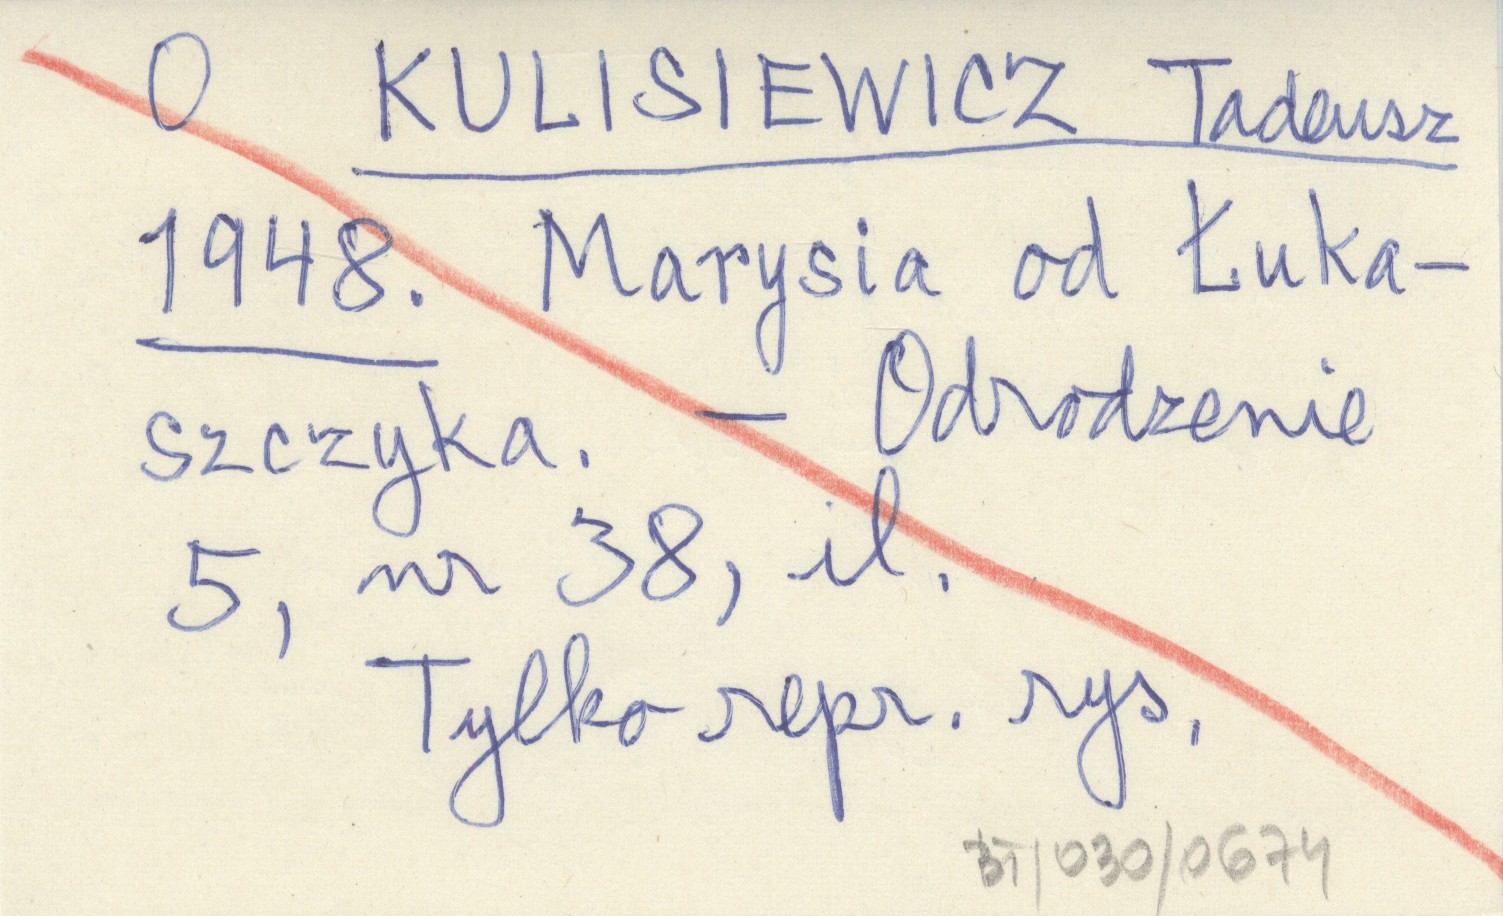 O KULISIEWICZ Tadeusz
1948. Marysia od Łuka-
szczyka. – Odrodzenie
5, nr 38, il.
Tylko repr. rys.
/030/0674